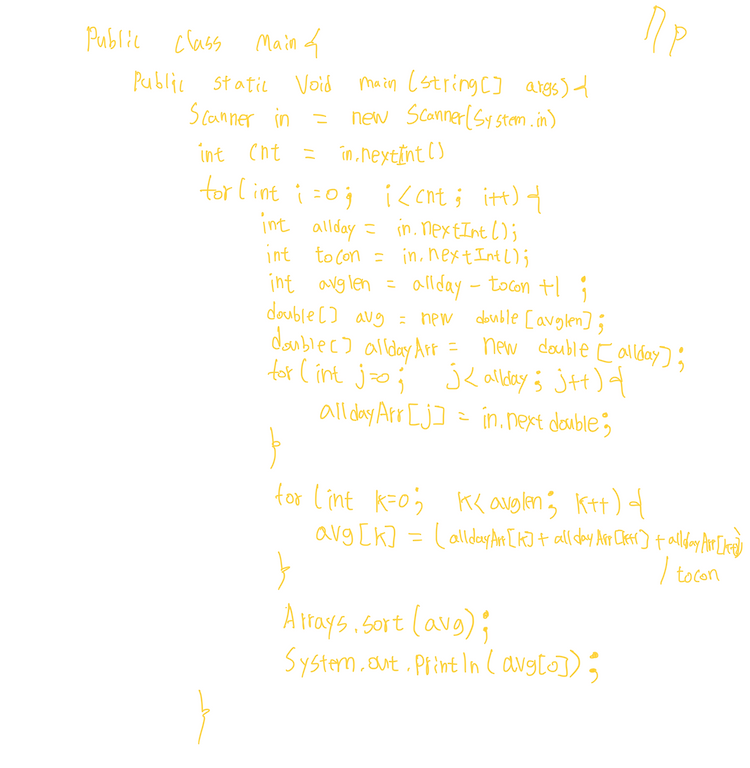 Public class Main{
Public static Void main (string[] args){
Scanner in = new Scanner(System.in)
int cnt = in.nextInt()
for(int i=0; i<cnt; i++){
int allday = in.nextInt();
int tocon = in.nextInt();
int avglen = allday - tocon +1 ;
double[] avg = new double[avglen];
double[] alldayArr = new double[allday];
for(int j=0; j<allday; j++){
alldayArr[j] = in.nextdouble;
}
for(int k=0; k<avglen; k++){
avg[k] = (alldayArr[k]+alldayArr[k+1]+alldayArr[k+2])
/ tocon
}
Arrays.sort(avg);
System.out.println(avg[0]);
}